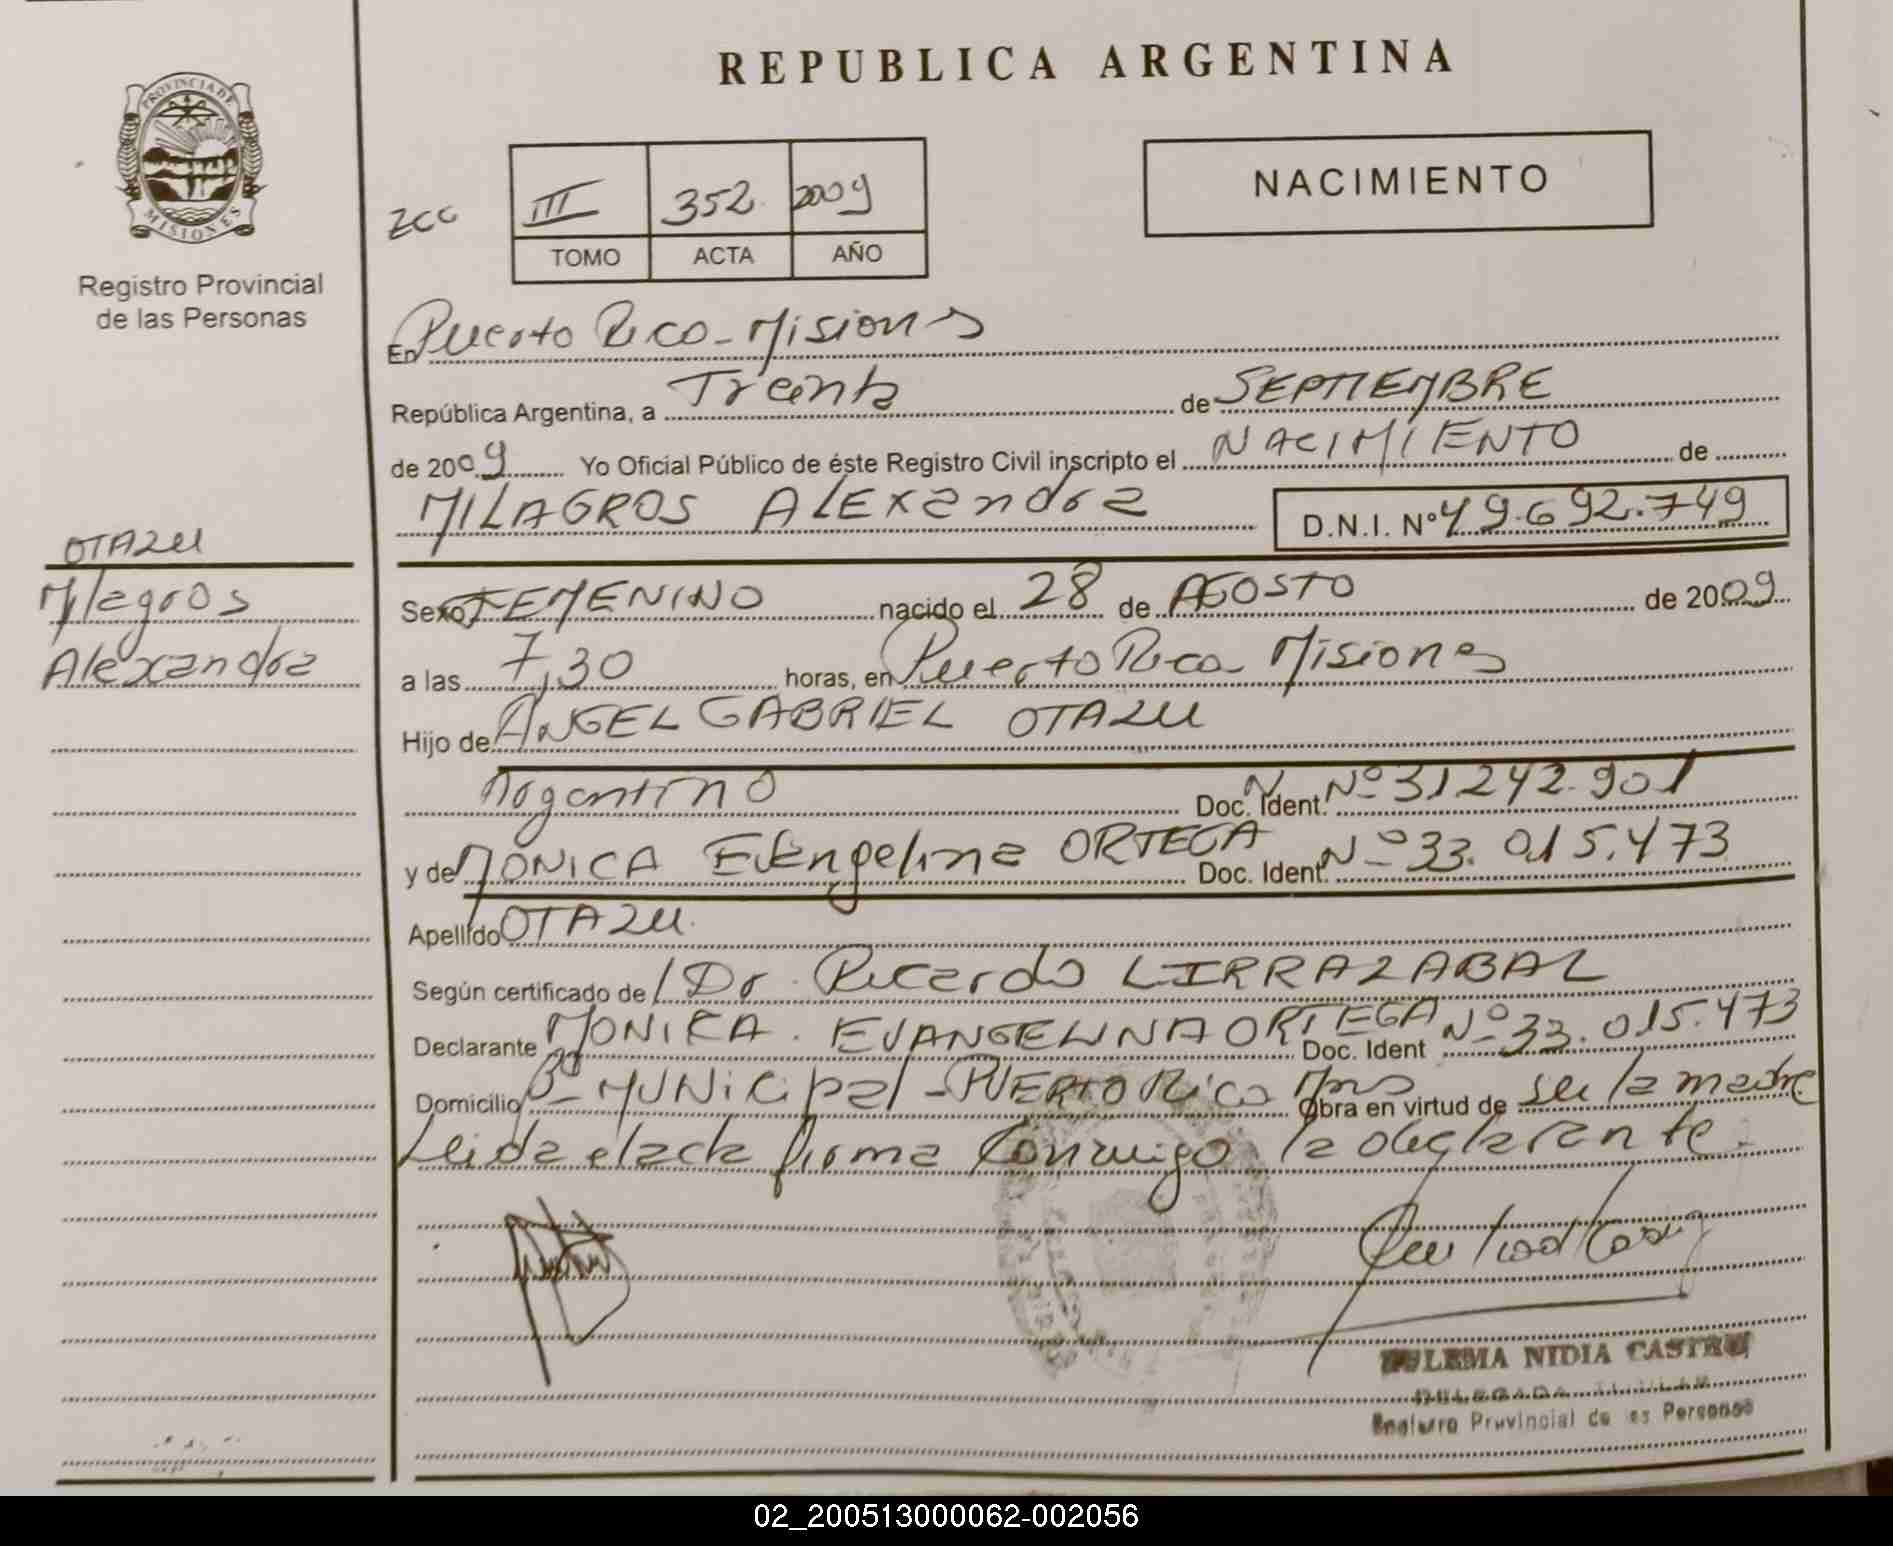 REPUBLICA ARGENTINA
PROVINCIA DE
MISIONES
Registro Provincial
de las Personas
NACIMIENTO
III 352 2009
TOMO ACTA AÑO
En Puerto Rico - Misiones
República Argentina, a Treinta de SEPTIEMBRE
de 2009 Yo Oficial Público de éste Registro Civil inscripto el NACIMIENTO de
MILAGROS ALEXandra D.N.I. Nº 49.692.749
OTAZU
Milagros
Alexandra
Sexo FEMENINO nacido el 28 de AGOSTO de 2009
a las 7,30 horas, en Puerto Rico - Misiones
Hijo de ANGEL GABRIEL OTAZU
Argentino Doc. Ident. Nº 31242.901
y de MONICA Evangelina ORTEGA Doc. Ident. Nº 33.015.473
Apellido OTAZU.
Según certificado de Dr. Ricardo LIRRAZABAL
Declarante MONICA. EVANGELINA ORTEGA Doc. Ident Nº 33.015.473
Domicilio Bº MUNICIpal - PUERTO RICO Mns Obra en virtud de ser la madre
Leida el acta firma Conmigo la declarante.
NIDIA CASTRO
DELEGADA TITULAR
Registro Provincial de las Personas
02_200513000062-002056